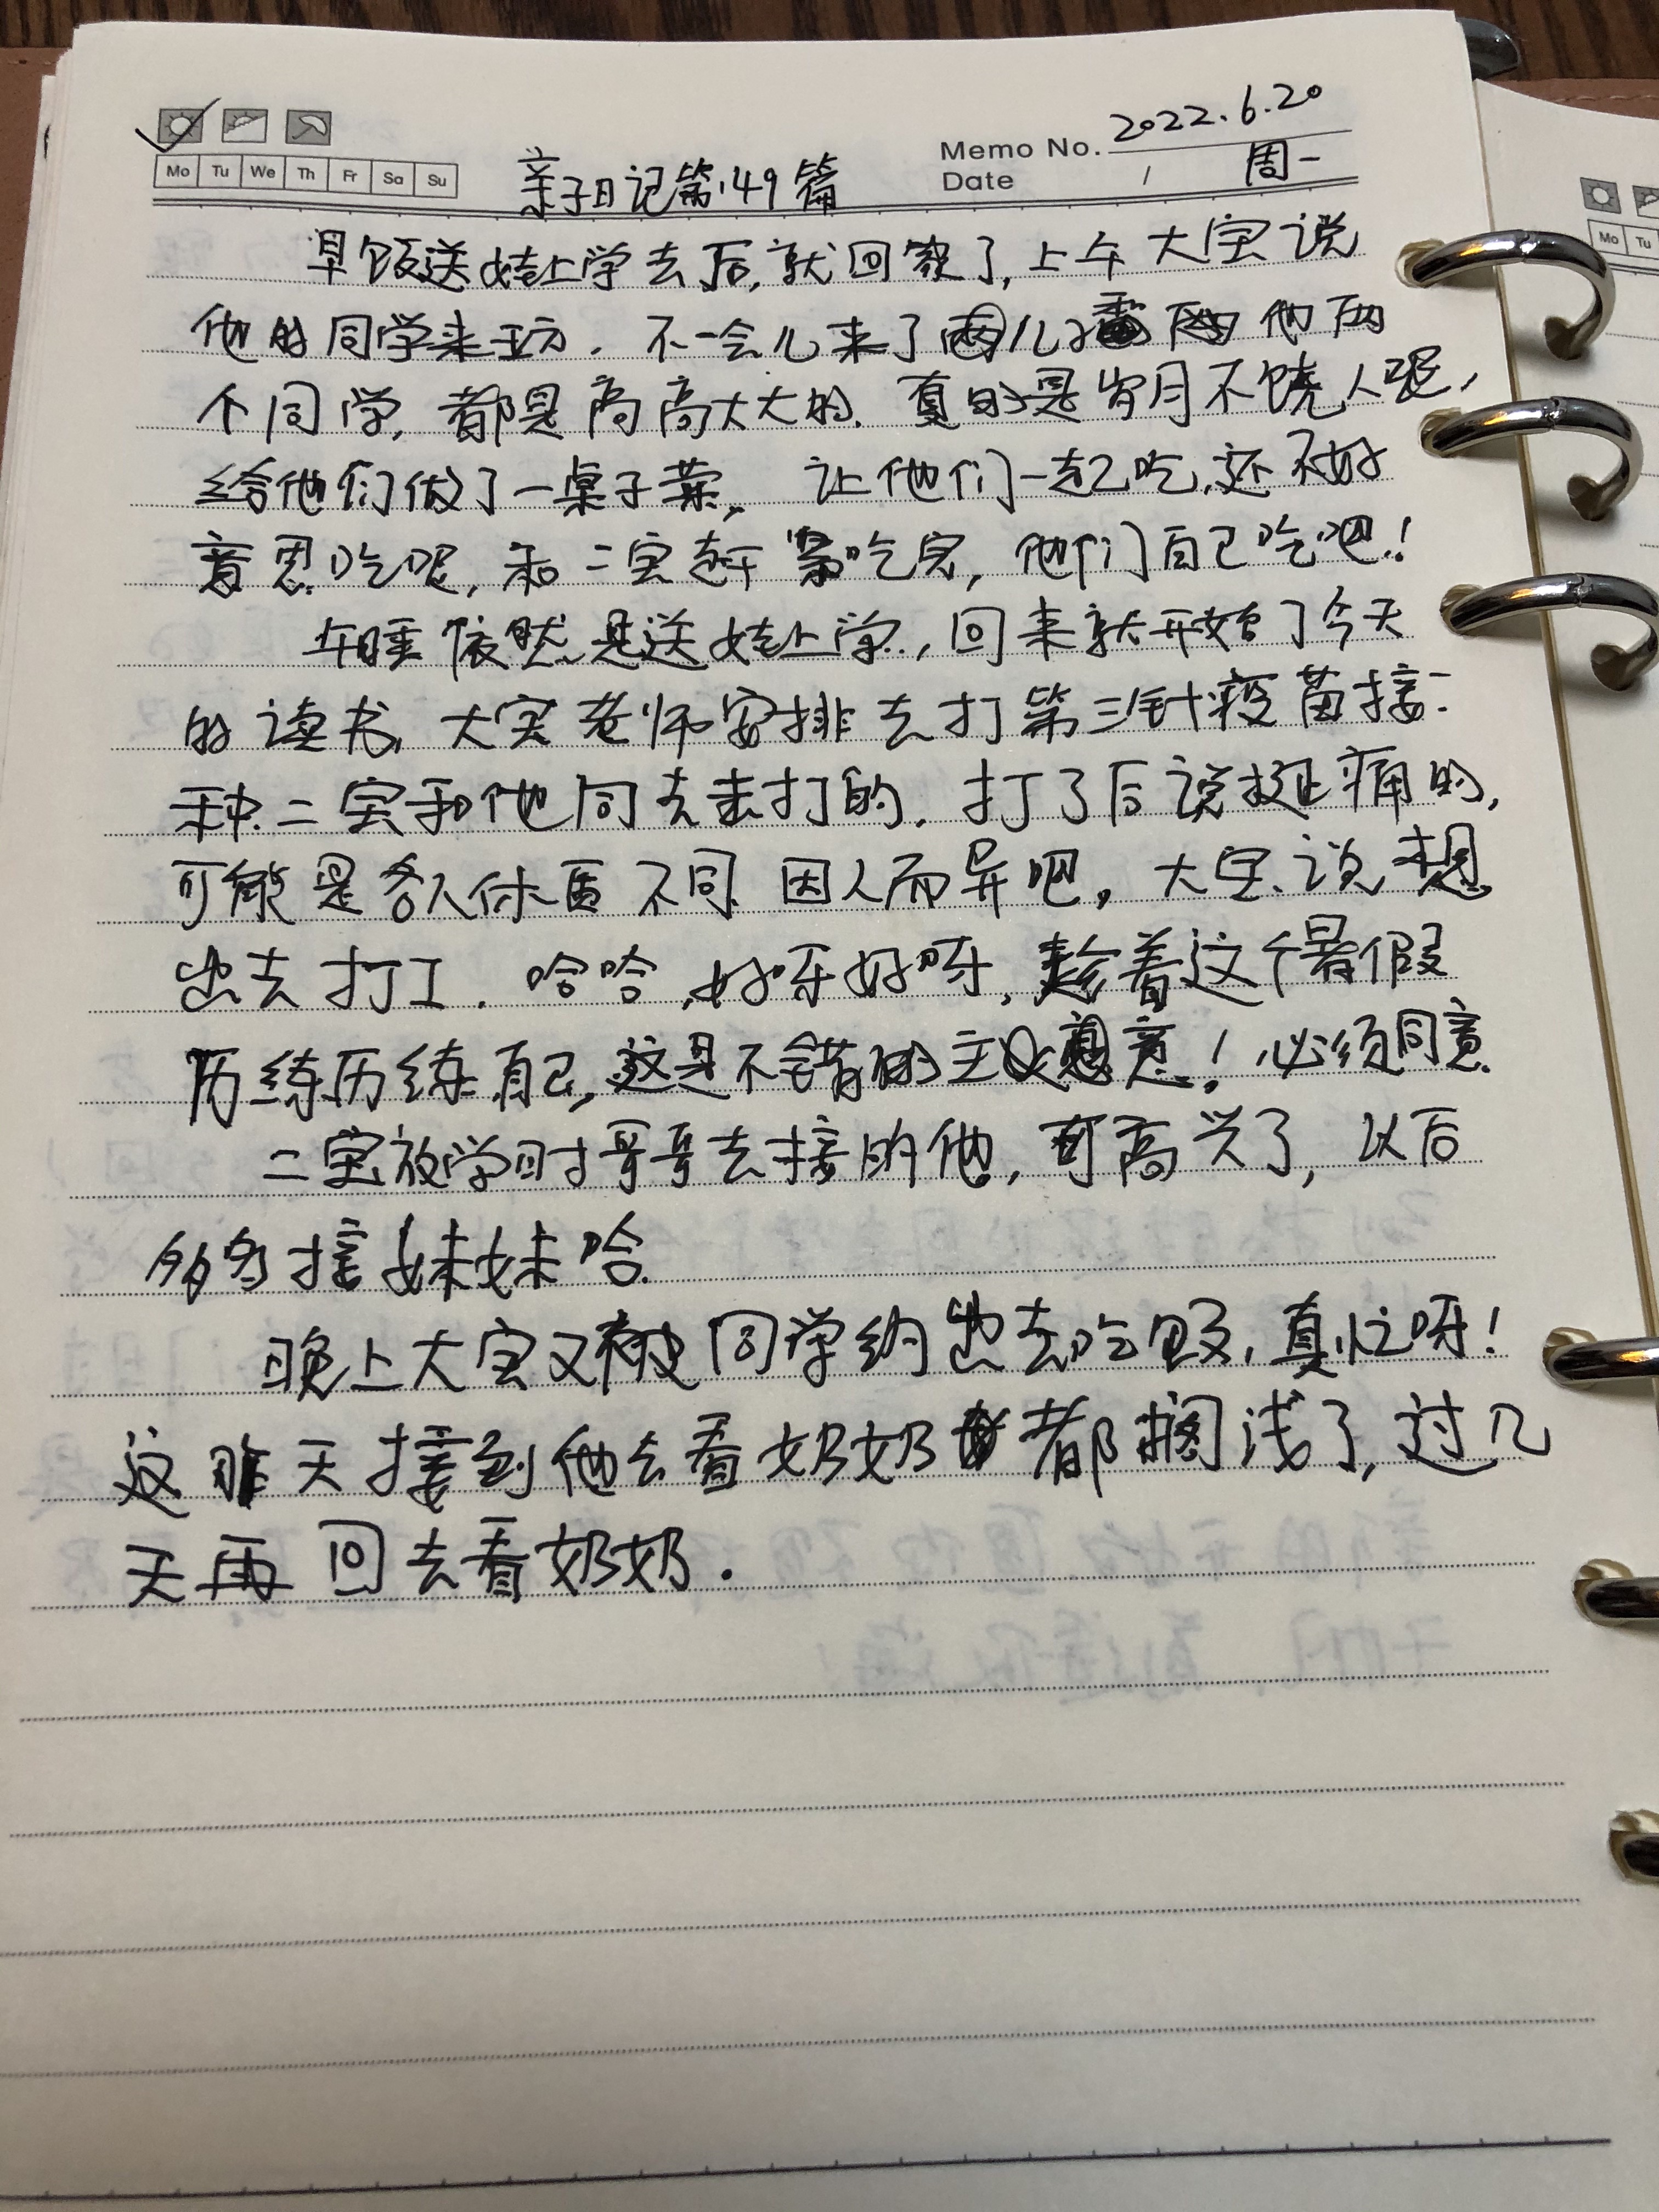 2022.6.20
Memo No.
Mo Tu We Th Fr Sa Su
亲子日记第149篇
Date / 周一
Mo Tu
早饭送娃上学去后,就回家了,上午大宝说
他的同学来玩.不一会儿来了他两
个同学,都是高高大大的.真的是岁月不饶人呢,
给他们做了一桌子菜,让他们一起吃,还不好
意思吃呢,和二宝赶紧吃完,他们自己吃吧!
午睡依然是送娃上学,回来就开始了今天
的读书,大宝老师安排去打第三针疫苗接
种.二宝和他同去打的.打了后说挺痛的,
可能是各人体质不同.因人而异吧,大宝说想
出去打工.哈哈,好呀好呀,趁着这个暑假
历练历练自己,这是不错的主意!必须同意.
二宝放学时哥哥去接的他,可高兴了,以后
多多接妹妹哈.
晚上大宝又被同学约出去吃饭,真忙呀!
这昨天接到他去看奶奶都搁浅了,过几
天再回去看奶奶.